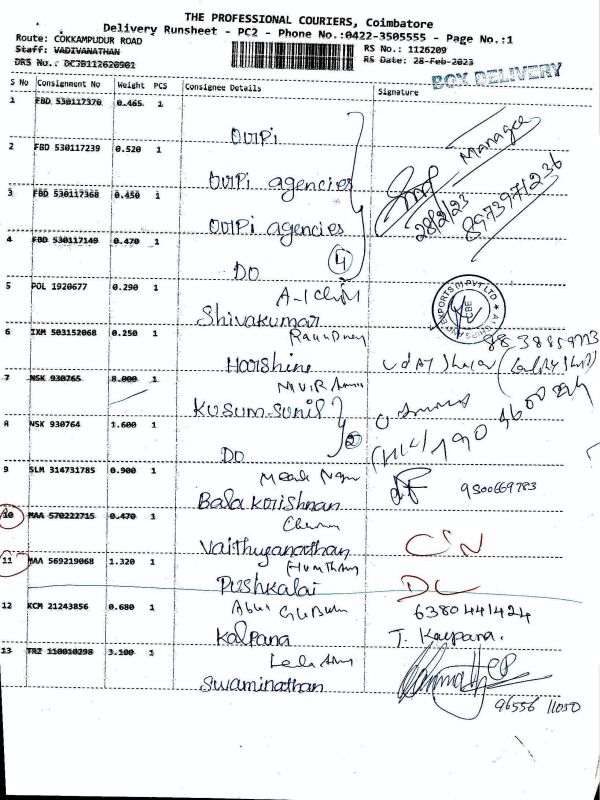 THE PROFESSIONAL COURIERS, Coimbatore
Delivery Runsheet - PC2 - Phone No.:0422-3505555 - Page No.:1
Route: COKKAMPUDUR ROAD
RS No.: 1126209
Staff: VADIVANATHAN
RS Date: 28-Feb-2023
DRS No.: DCJB112620901
BOX DELIVERY
S No Consignment No Weight PCS Consignee Details Signature
1 FBD 530117370 0.465 1
OviPi
Manager
2 FBD 530117239 0.520 1
OviPi agencies
28/2/23
8973971236
3 FBD 530117368 0.450 1
OviPi agencies
4 FBD 530117149 0.470 1
DO
4
5 POL 1920677 0.290 1
Shivakumar
6 IXM 503152068 0.250 1
Hoorshine
7 NSK 930765 8.000 1
Kusum Sunil
8 NSK 930764 1.600 1
DO
2
9 SLM 314731785 0.900 1
Balakorishnan
9500669783
10 MAA 570222715 0.470 1
Vaithyanathan
11 MAA 569219068 1.320 1
Pushkalai
DL
12 KCM 21243856 0.680 1
Kalpana
6380441424
T. Kalpana.
13 TRZ 110010298 3.100 1
Swaminathan
96556 11050